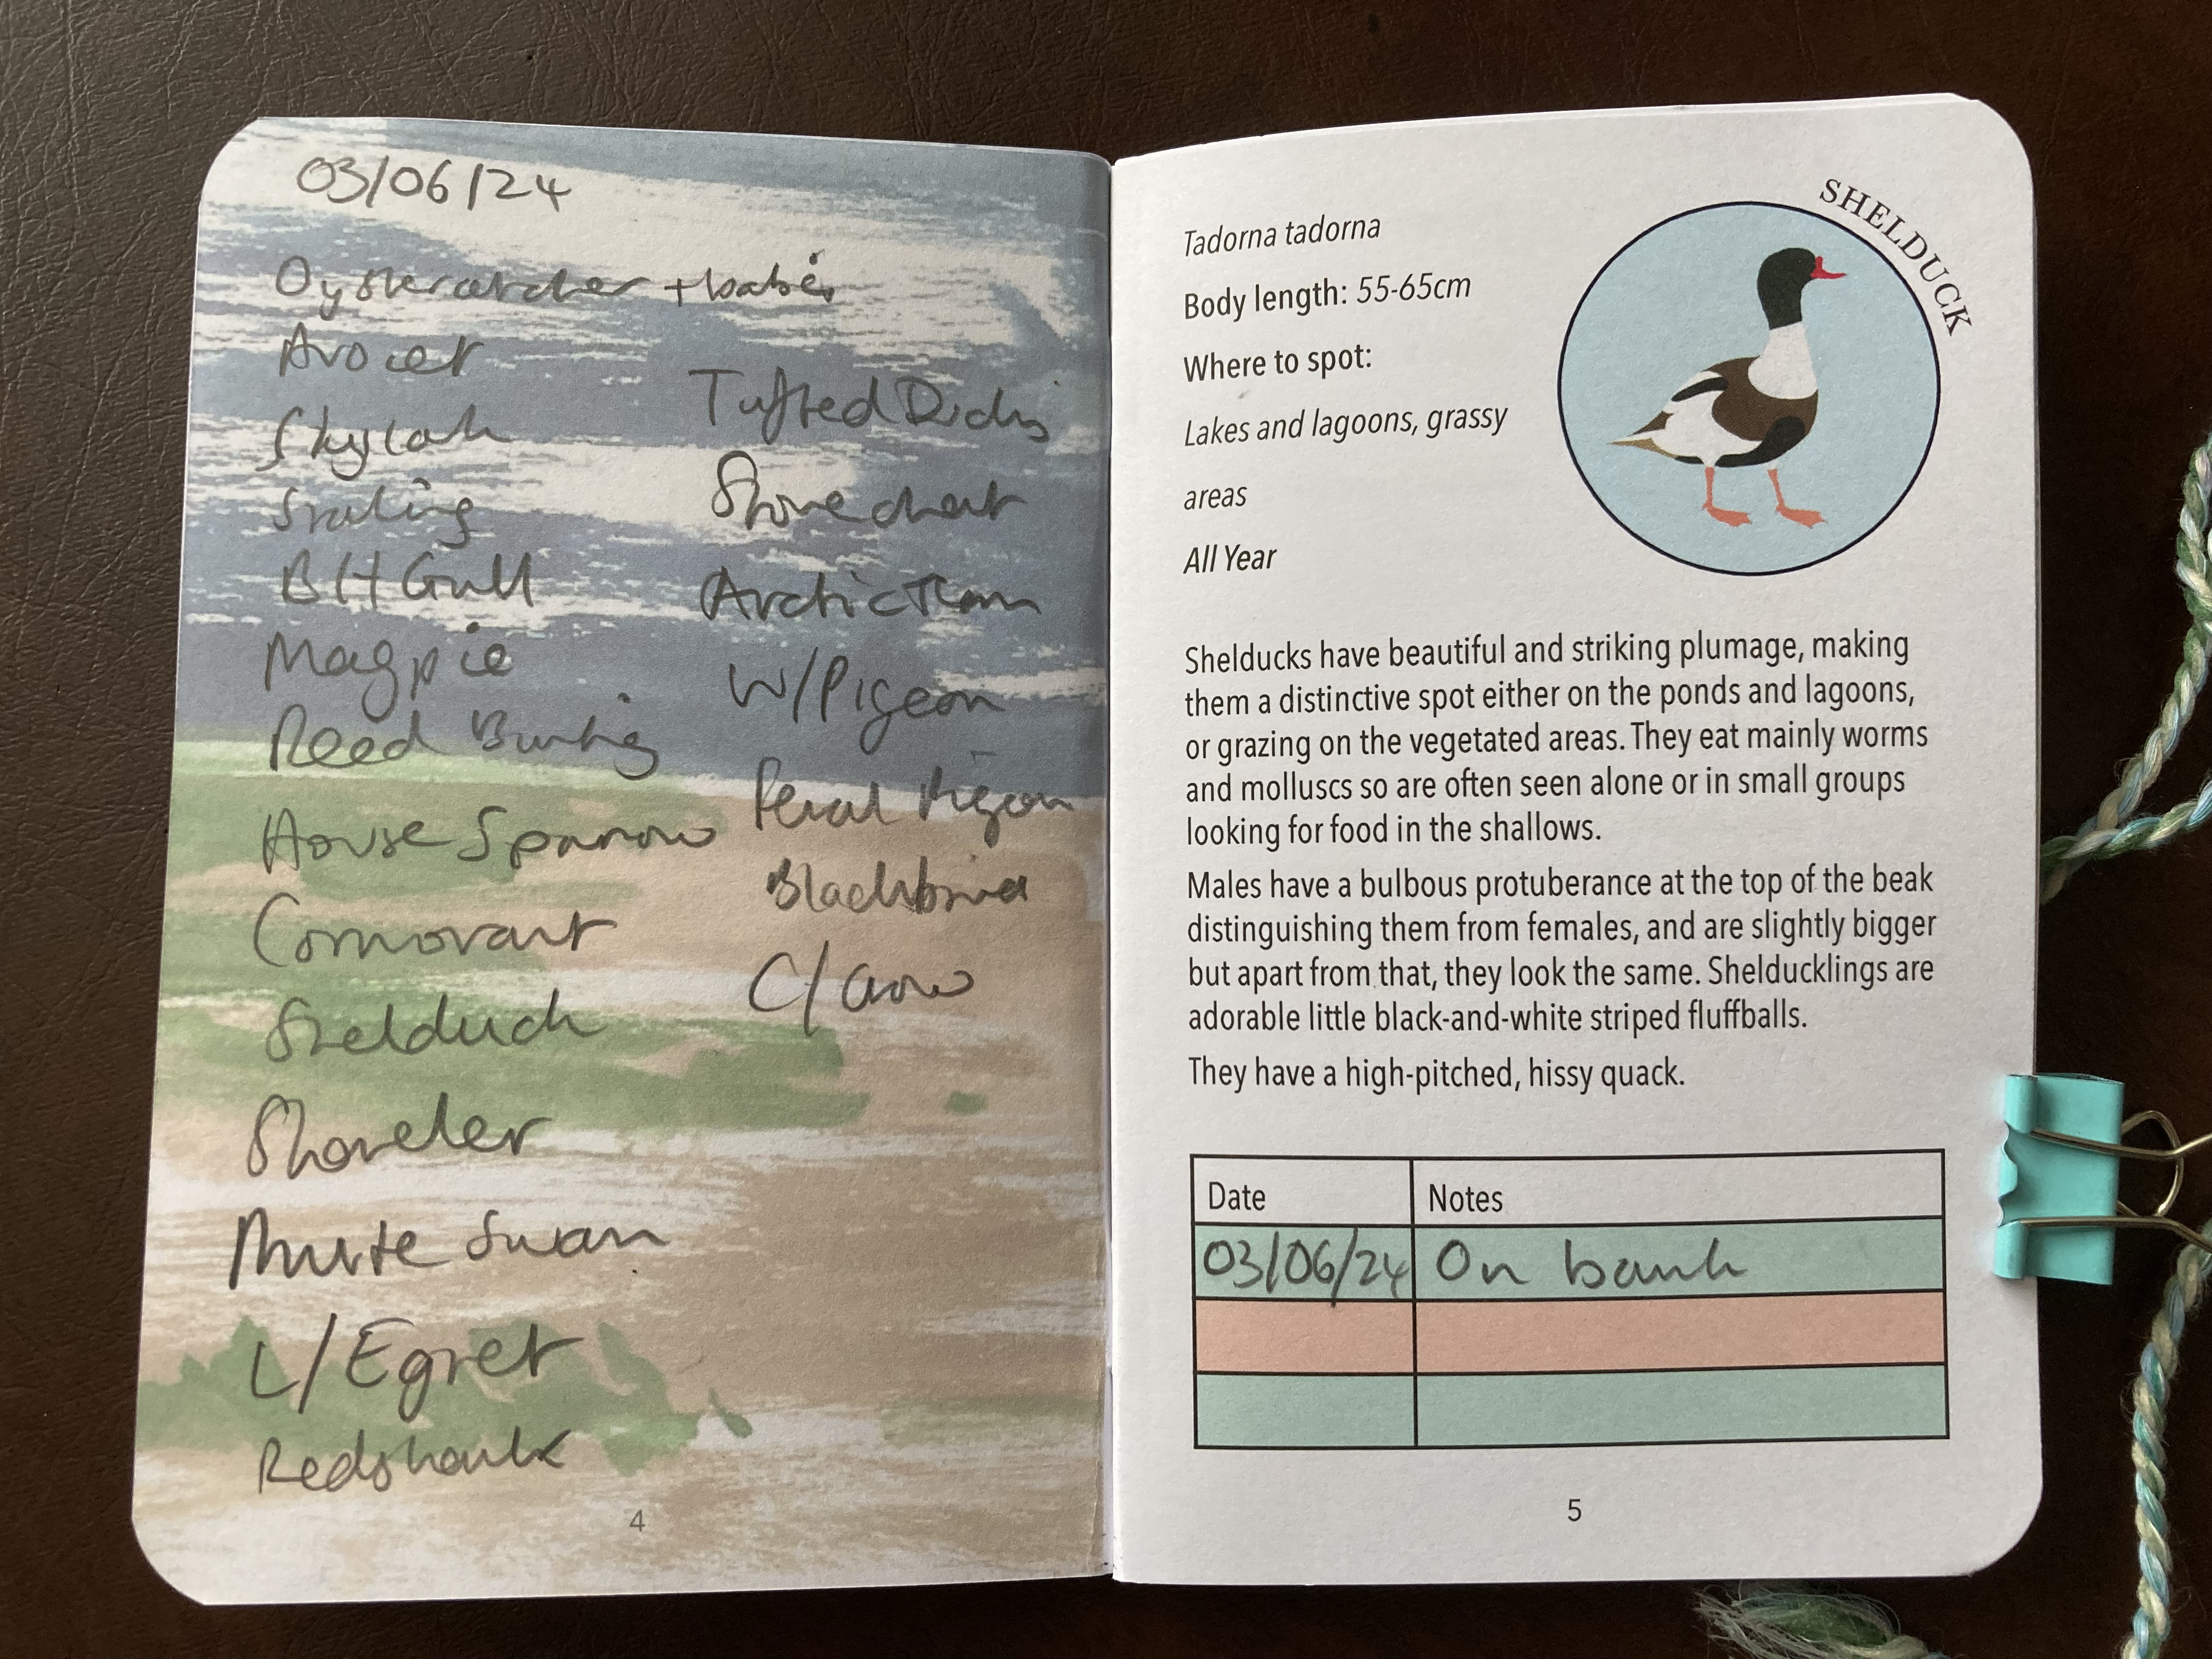 03/06/24
Oystercatcher + babies
Avocet
Skylark
Starling
BH Gull
Magpie
Reed Bunting
House Sparrow
Cormorant
Shelduck
Shoveler
Mute Swan
L/Egret
Redshank
Tufted Ducks
Stonechat
Arctic Tern
W/Pigeon
Feral Pigeon
Blackbird
C/Crow
4
SHELDUCK
Tadorna tadorna
Body length: 55-65cm
Where to spot:
Lakes and lagoons, grassy
areas
All Year
Shelducks have beautiful and striking plumage, making
them a distinctive spot either on the ponds and lagoons,
or grazing on the vegetated areas. They eat mainly worms
and molluscs so are often seen alone or in small groups
looking for food in the shallows.
Males have a bulbous protuberance at the top of the beak
distinguishing them from females, and are slightly bigger
but apart from that, they look the same. Shelducklings are
adorable little black-and-white striped fluffballs.
They have a high-pitched, hissy quack.
Date Notes
03/06/24 On bank
5